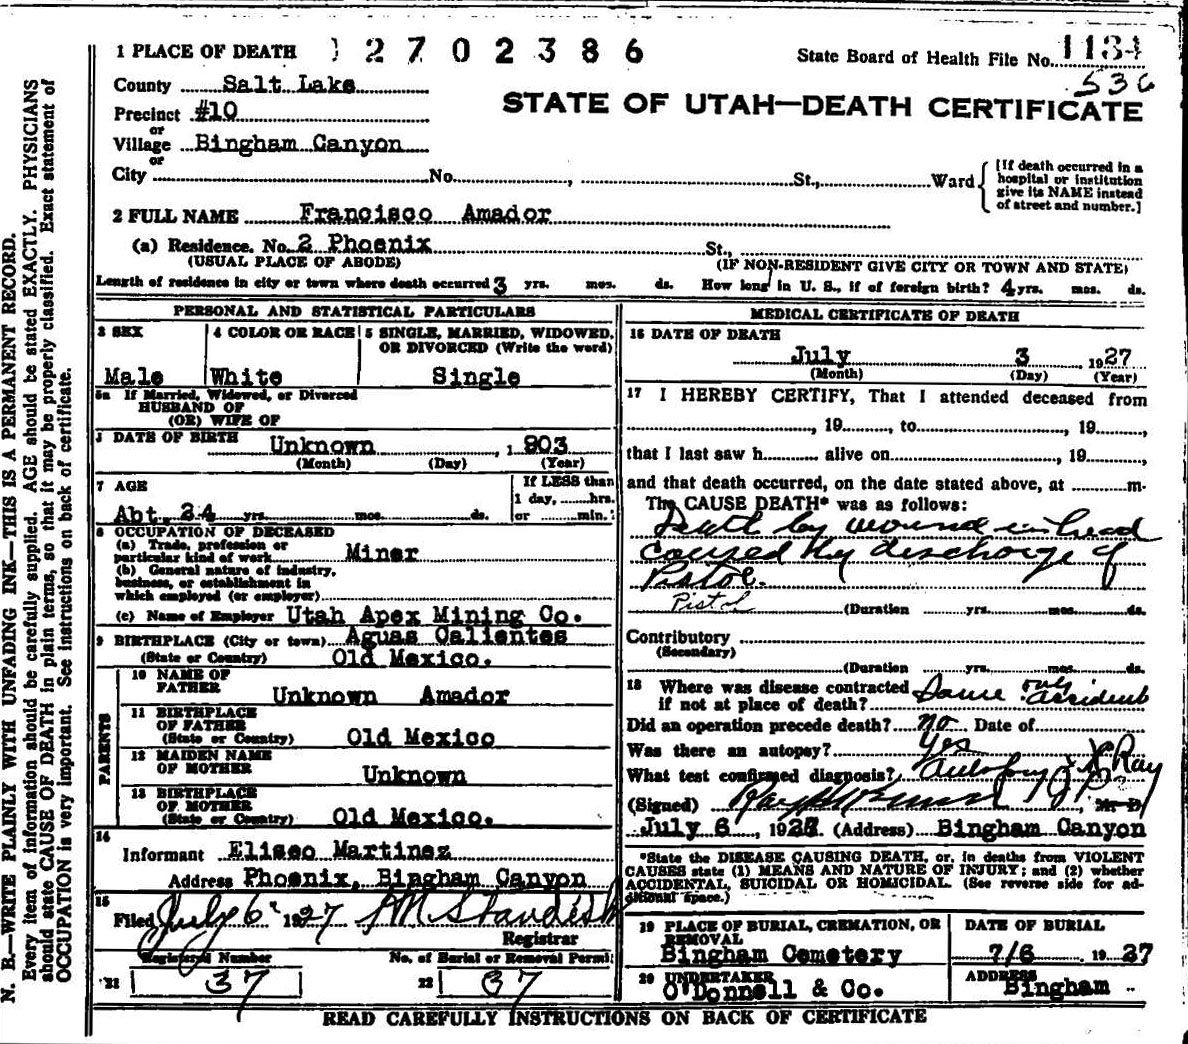 1 PLACE OF DEATH 12702386 State Board of Health File No. 1134
536
County Salt Lake
STATE OF UTAH—DEATH CERTIFICATE
Precinct #10
or
Village Bingham Canyon
or
City No. , St., Ward
[If death occurred in a
hospital or institution
give its NAME instead
of street and number.]
2 FULL NAME Francisco Amador
(a) Residence. No. 2 Phoenix St.,
(USUAL PLACE OF ABODE) (IF NON-RESIDENT GIVE CITY OR TOWN AND STATE)
Length of residence in city or town where death occurred 3 yrs. mos. ds. How long in U. S., if of foreign birth? 4 yrs. mos. ds.
PERSONAL AND STATISTICAL PARTICULARS
3 SEX 4 COLOR OR RACE 5 SINGLE, MARRIED, WIDOWED,
OR DIVORCED (Write the word)
Male White Single
5a If Married, Widowed, or Divorced
HUSBAND OF
(OR) WIFE OF
DATE OF BIRTH Unknown , 1903
(Month) (Day) (Year)
7 AGE If LESS than
1 day, hrs.
Abt. 24 yrs. mos. ds. or min.
8 OCCUPATION OF DECEASED
(a) Trade, profession or
particular kind of work Miner
(b) General nature of industry,
business, or establishment in
which employed (or employer)
(c) Name of Employer Utah Apex Mining Co.
9 BIRTHPLACE (City or town) Aguas Calientes
(State or Country) Old Mexico.
PARENTS
10 NAME OF
FATHER Unknown Amador
11 BIRTHPLACE
OF FATHER
(State or Country) Old Mexico
12 MAIDEN NAME
OF MOTHER Unknown
13 BIRTHPLACE
OF MOTHER
(State or Country) Old Mexico.
14
Informant Eliseo Martinez
Address Phoenix, Bingham Canyon
15
Filed July 6 1927 M Standish
Registrar
Registered Number No. of Burial or Removal Permit
21 37 22 37
MEDICAL CERTIFICATE OF DEATH
16 DATE OF DEATH
July 3 , 1927
(Month) (Day) (Year)
17 I HEREBY CERTIFY, That I attended deceased from
, 19 , to , 19 ,
that I last saw h alive on , 19 ,
and that death occurred, on the date stated above, at m.
The CAUSE DEATH* was as follows:
Death by wound in head
caused by discharge of
Pistol.
Pistol (Duration yrs. mos. ds.
Contributory
(Secondary)
(Duration yrs. mos. ds.
18 Where was disease contracted
if not at place of death? Same accident
Did an operation precede death? no Date of
Was there an autopsy? Yes
What test confirmed diagnosis? autopsy X Ray
(Signed) J.P., M. D
July 6 , 1927. (Address) Bingham Canyon
*State the DISEASE CAUSING DEATH, or, in deaths from VIOLENT
CAUSES state (1) MEANS AND NATURE OF INJURY; and (2) whether
ACCIDENTAL, SUICIDAL OR HOMICIDAL. (See reverse side for ad-
ditional space.)
19 PLACE OF BURIAL, CREMATION, OR
REMOVAL
Bingham Cemetery
DATE OF BURIAL
7/6 1927
20 UNDERTAKER
O'Donnell & Co.
ADDRESS
Bingham
READ CAREFULLY INSTRUCTIONS ON BACK OF CERTIFICATE
N. B.—WRITE PLAINLY WITH UNFADING INK—THIS IS A PERMANENT RECORD.
Every item of information should be carefully supplied. AGE should be stated EXACTLY. PHYSICIANS
should state CAUSE OF DEATH in plain terms, so that it may be properly classified. Exact statement of
OCCUPATION is very important. See instructions on back of certificate.